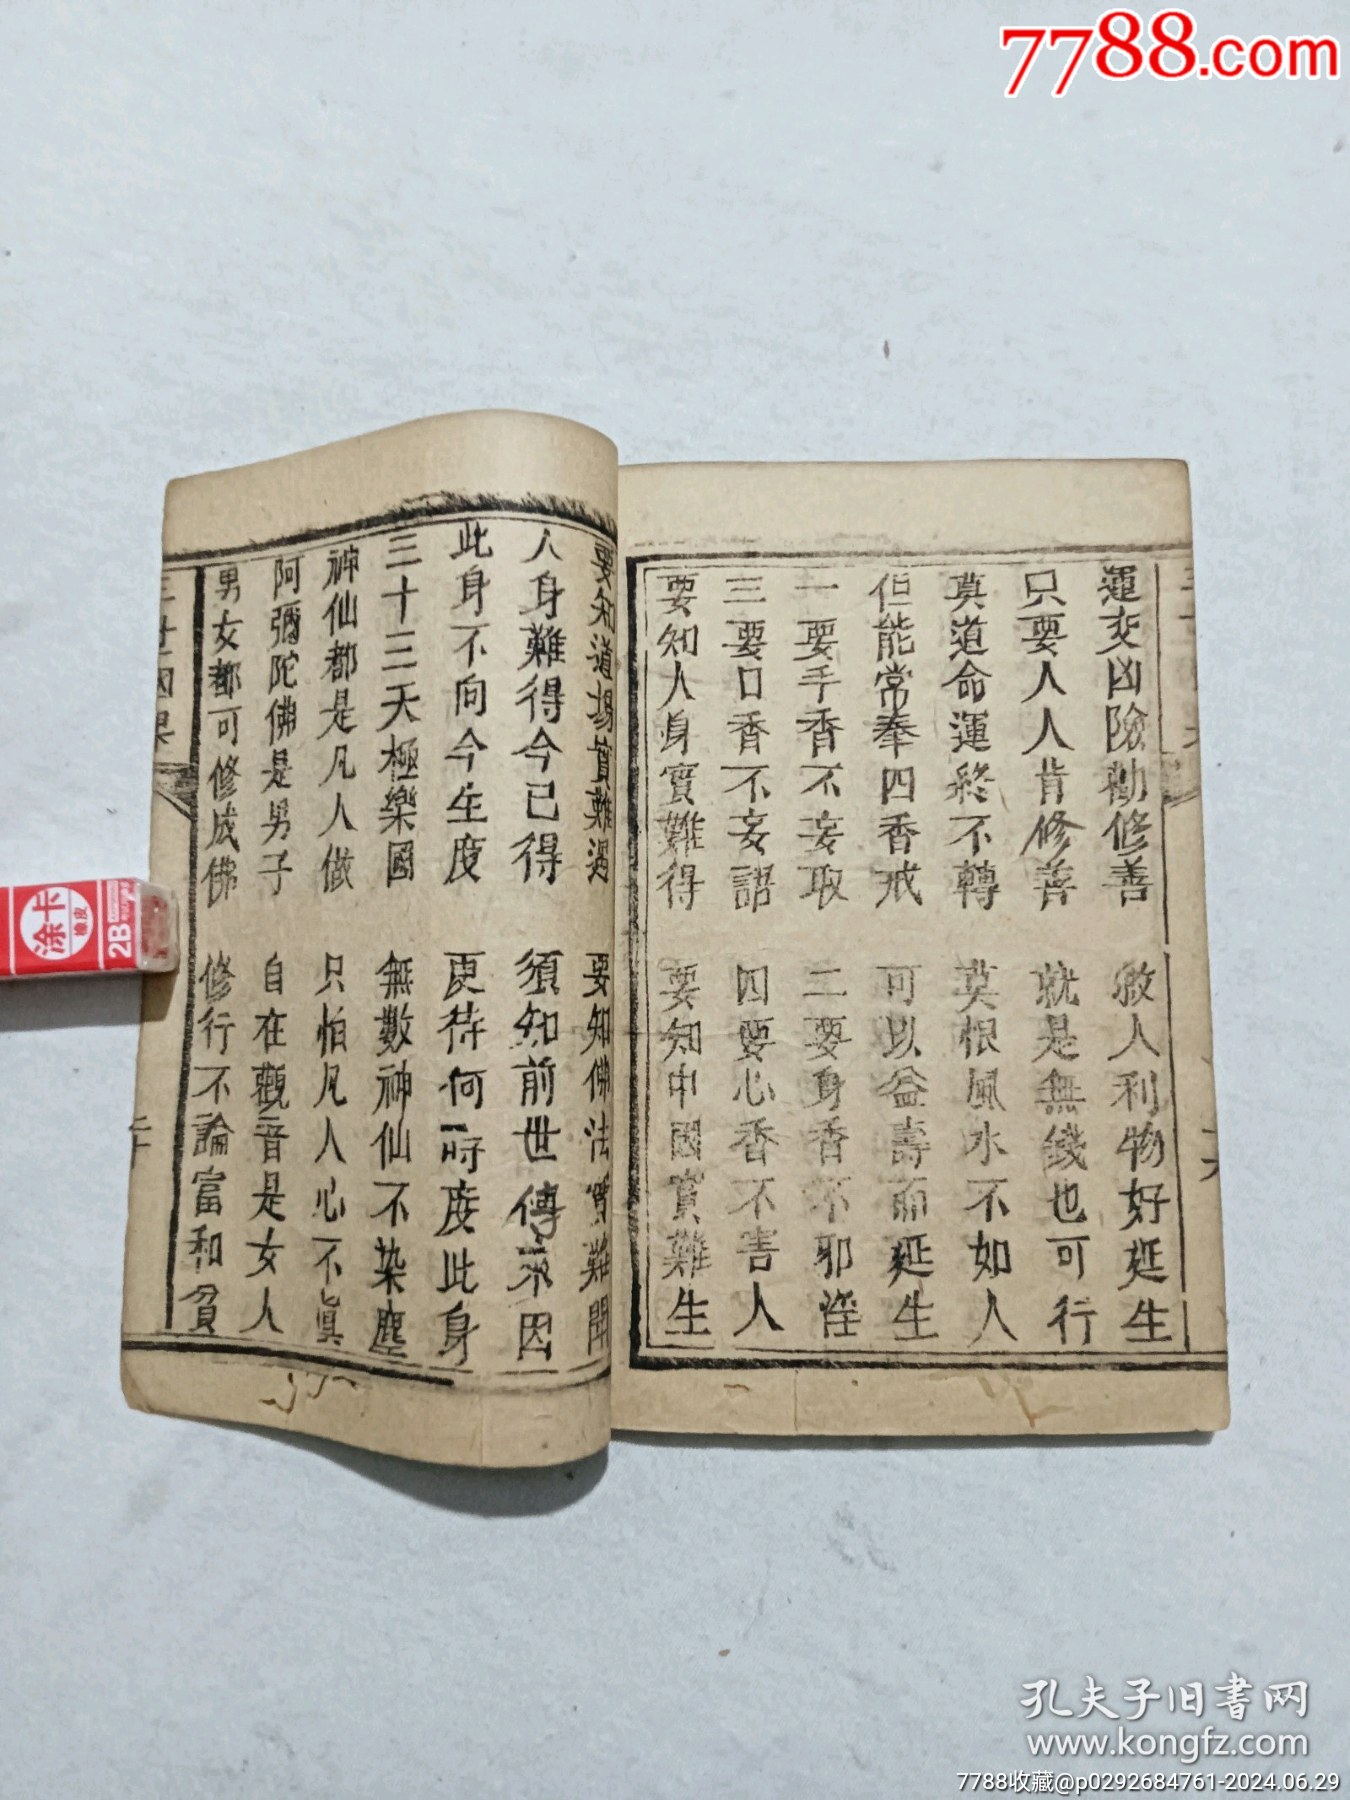 7788.com
運交凶險勸修善 救人利物好延生
只要人人肯修善 就是無錢也可行
莫道命運終不轉 莫根風水不如人
但能常奉四香戒 可以益壽而延生
一要手香不妄取 二要身香不邪淫
三要口香不妄語 四要心香不害人
要知人身實難得 要知中國實難生
要知道場實難遇 要知佛法實難聞
人身難得今已得 須知前世傳來因
此身不向今生度 更待何時度此身
三十三天極樂國 無數神仙不染塵
神仙都是凡人做 只怕凡人心不眞
阿彌陀佛是男子 自在觀音是女人
男女都可修成佛 修行不論富和貧
三世因果
二十
涂卡
橡皮
2B
孔夫子旧書网
www.kongfz.com
7788收藏@p0292684761-2024.06.29